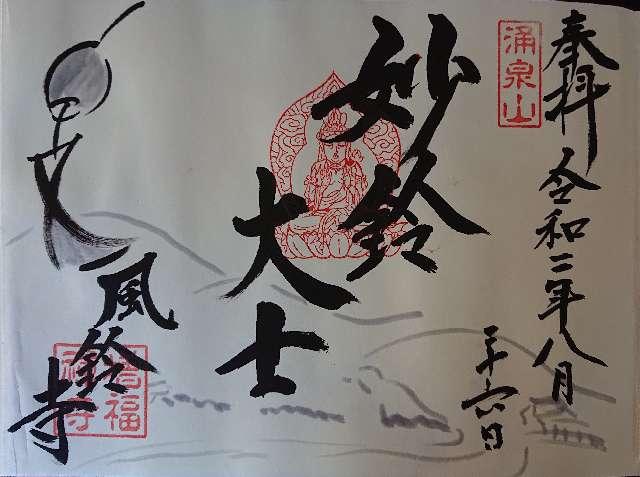 奉拝 令和二年八月
二十六日
涌泉山
妙鈴
大士
風鈴寺